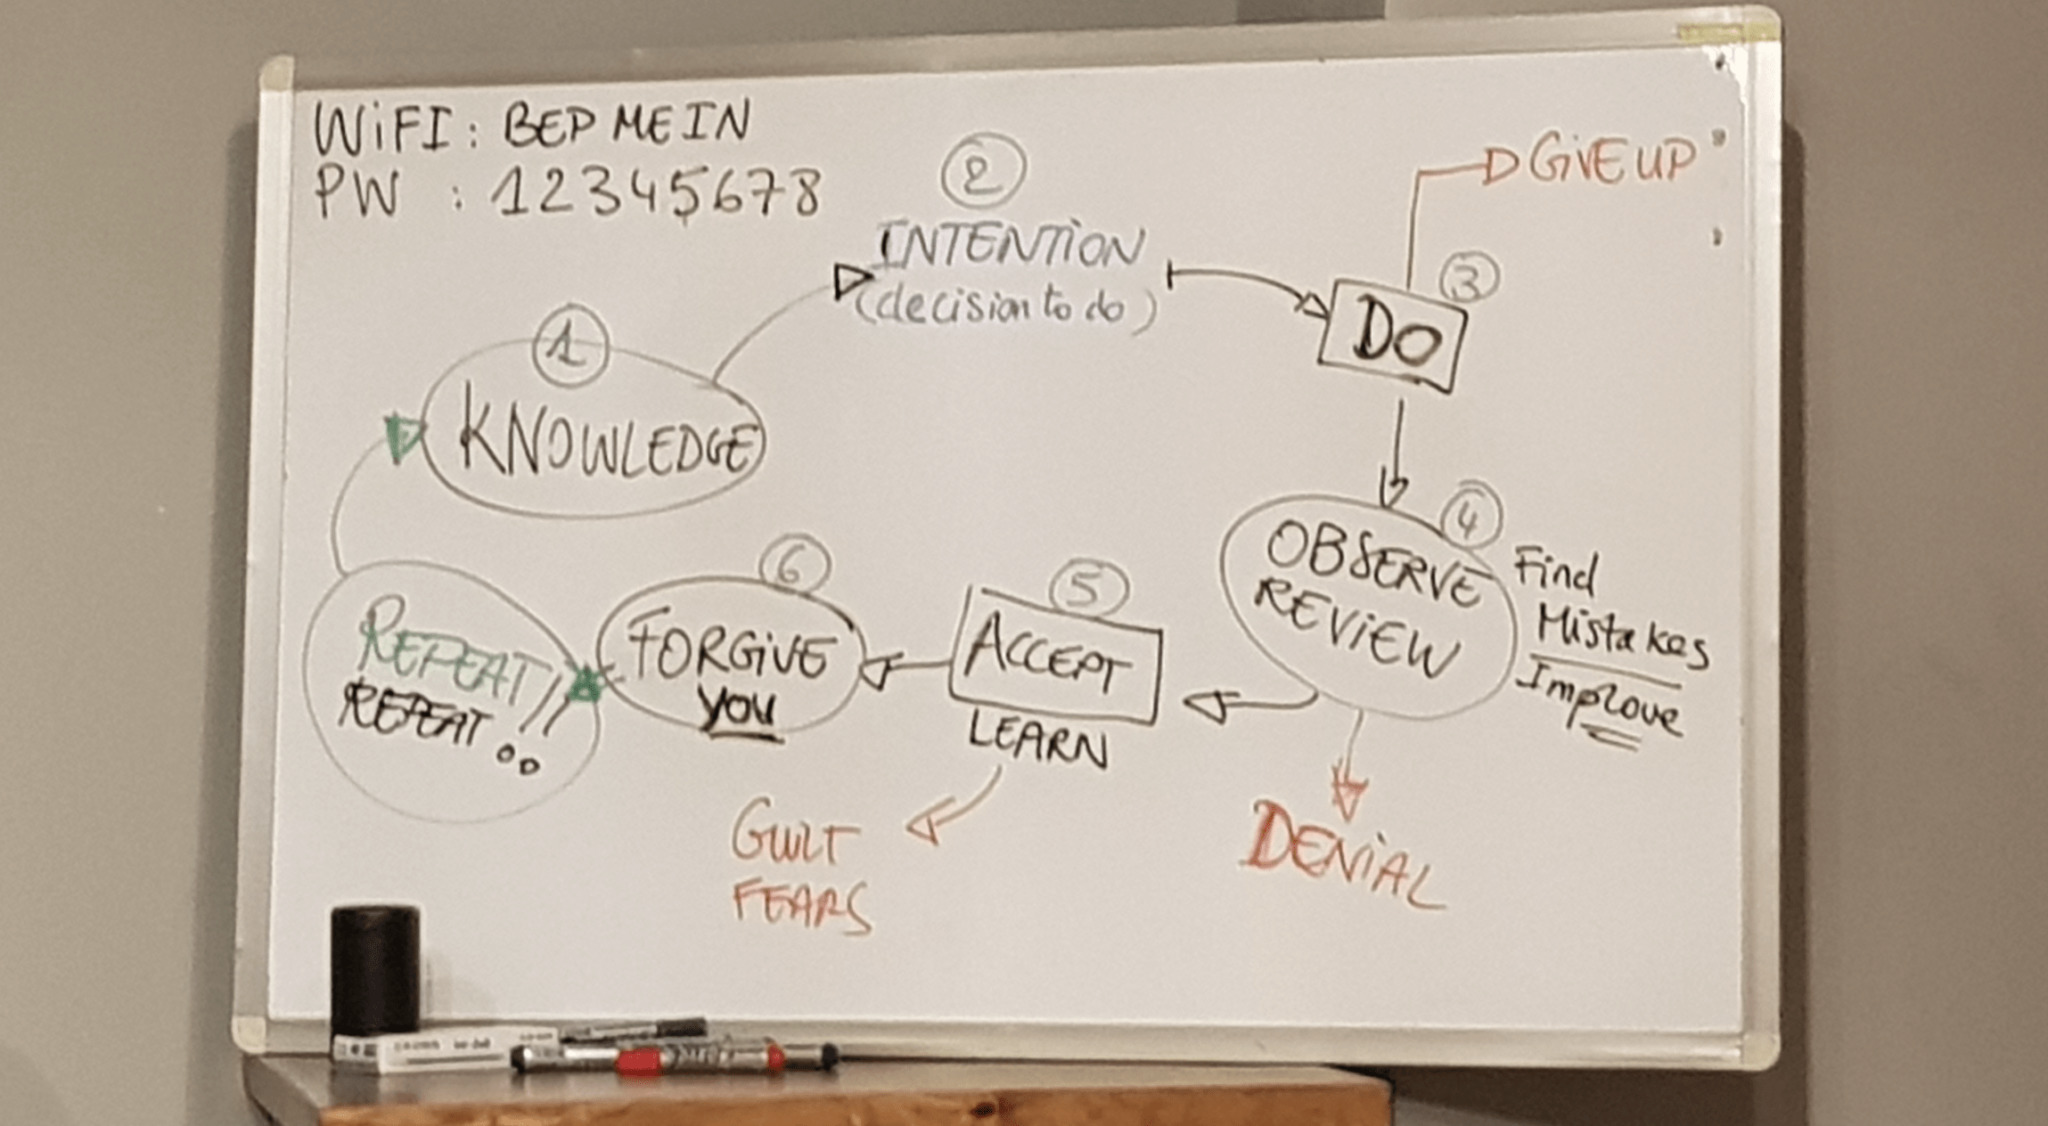 WiFI: BEP MEIN
PW : 12345678
2
INTENTiON
(decision to do)
GiVE UP
3
DO
1
KNOWLEDGE
4
OBSERVE
REViEW
Find
Mistakes
Improve
5
ACCEPT
LEARN
6
FORGiVE
YOU
REPEAT!!
REPEAT
GUILT
FEARS
DENiAL